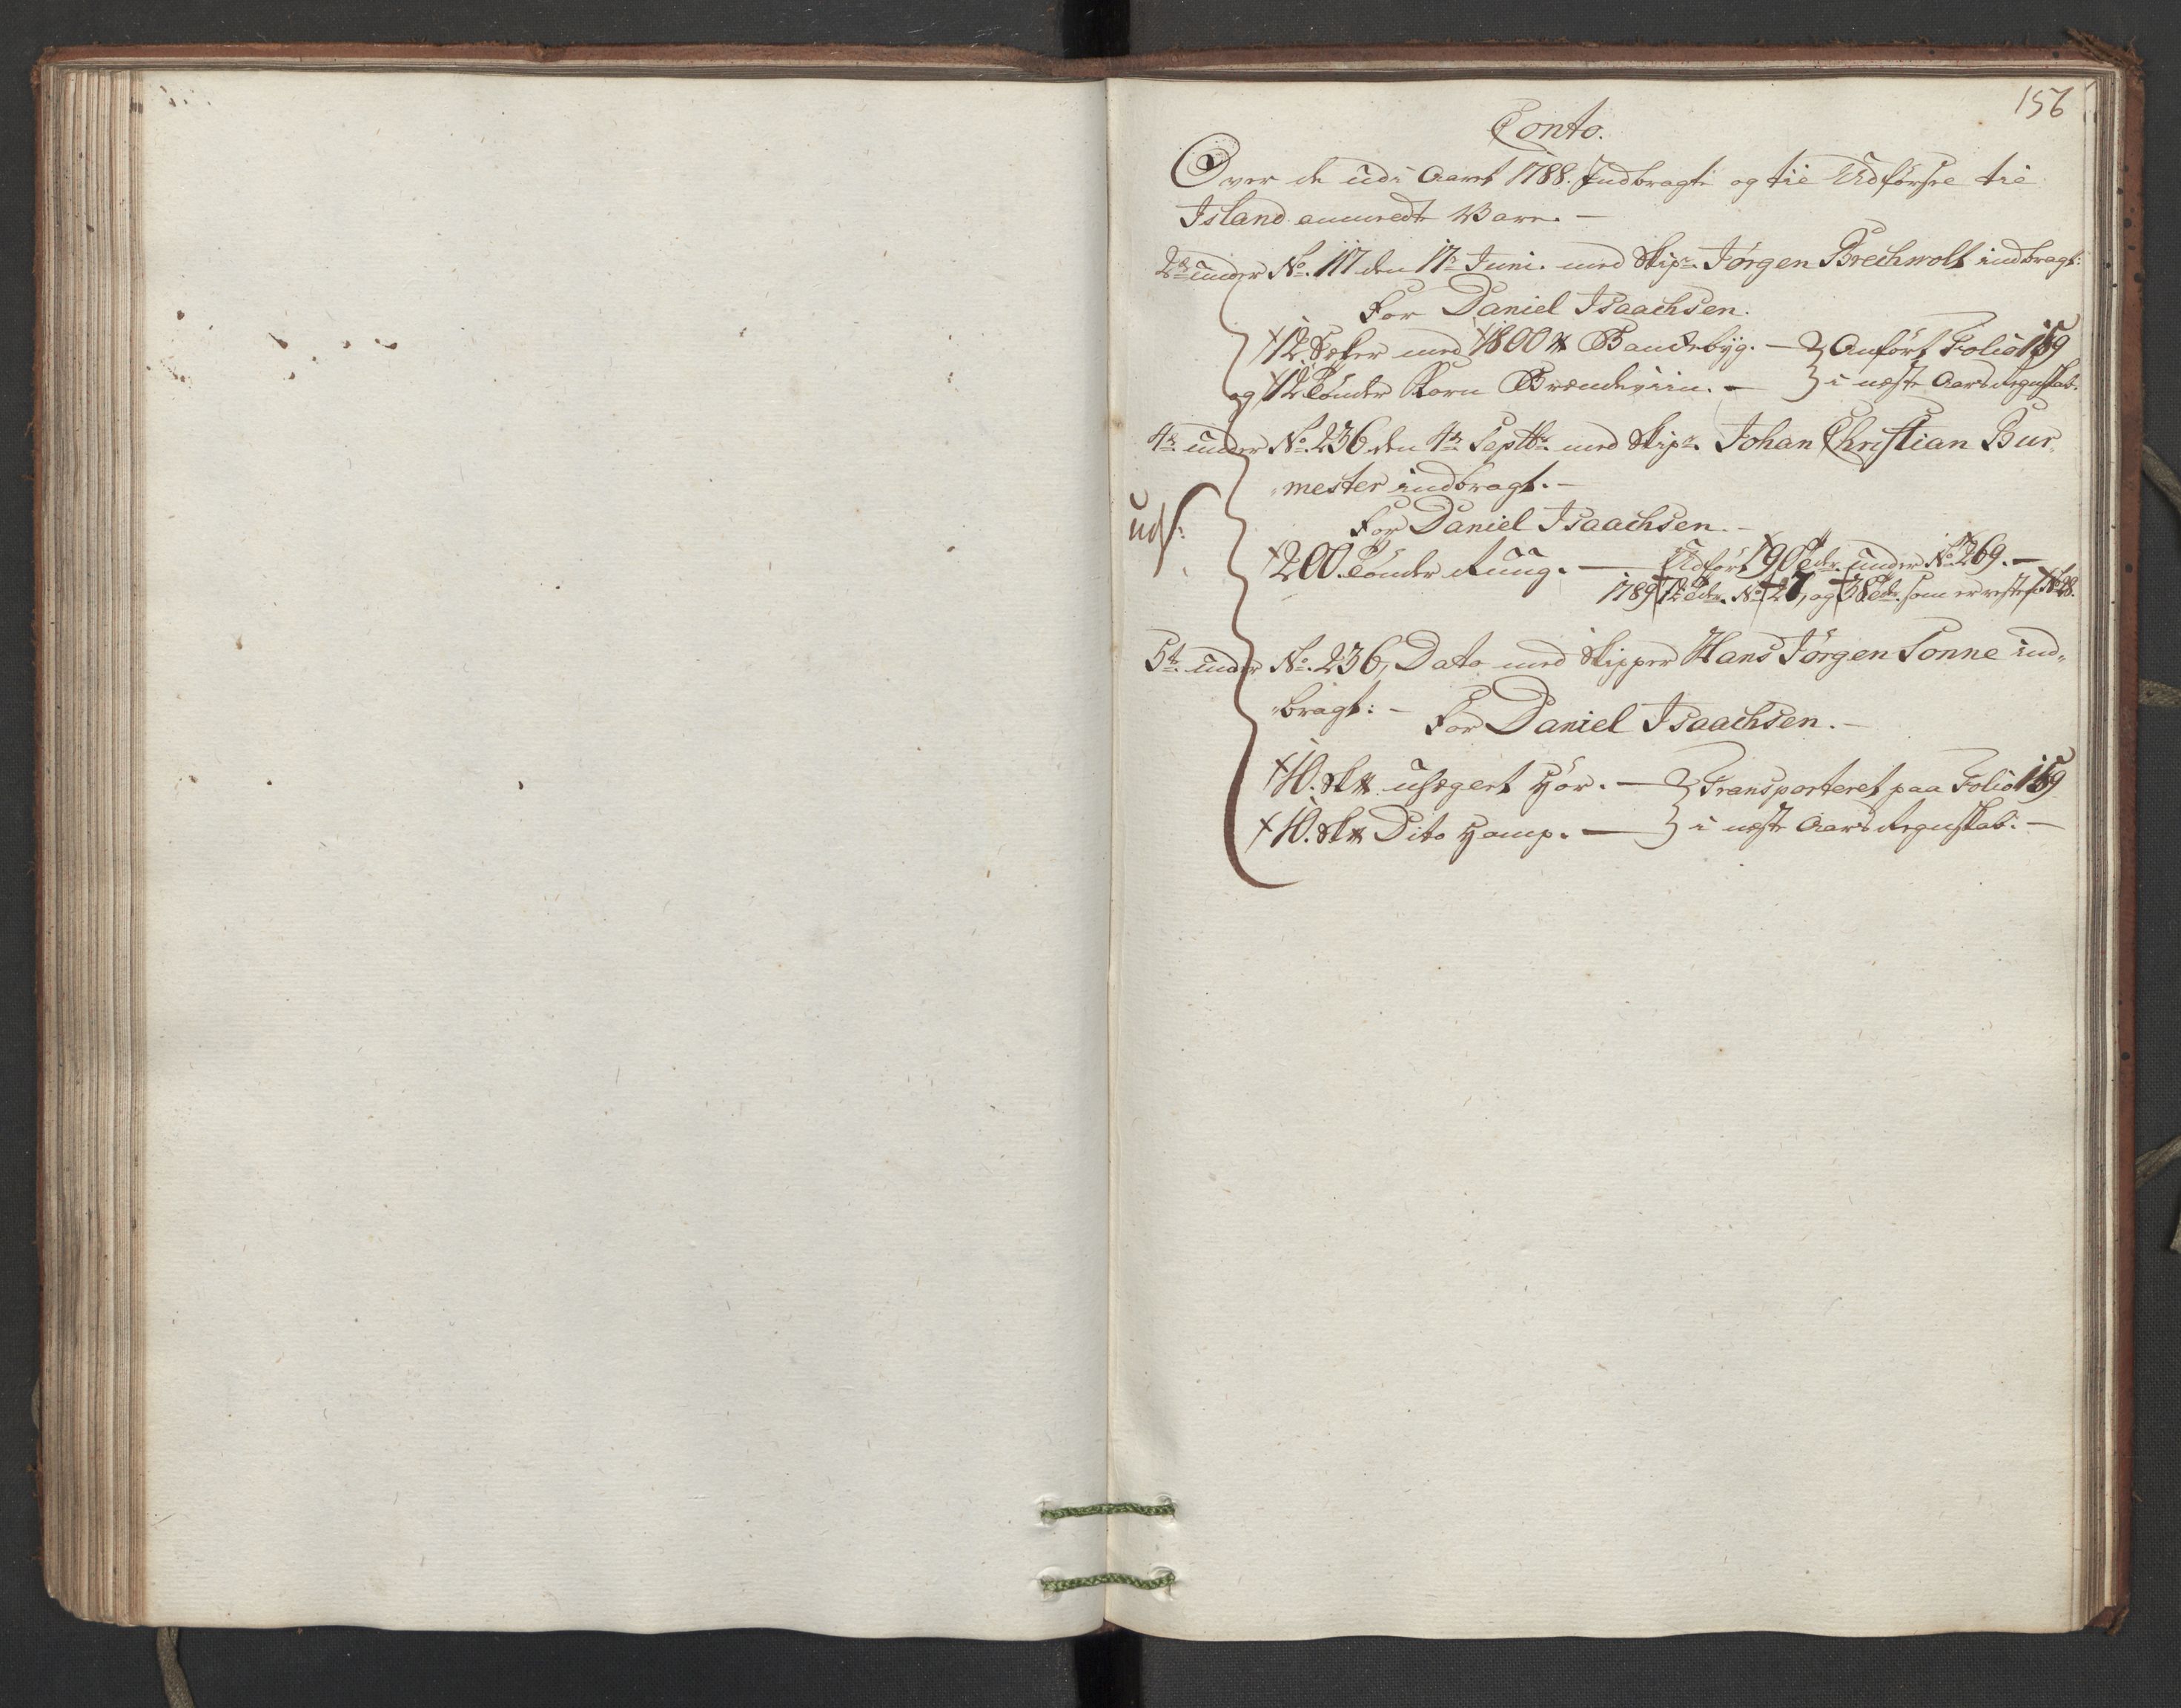 156
Conto.
Over de udi Aaret 1788. Indbragte og til Udførsel til
Island anmeldte Vare. —
2de under No. 117 den 17de Juni. med Skipr. Jørgen Brechwolt indbragt:
For Daniel Isaachsen.
12 Sekker med 1800 ℔ Bankebÿg. — Anført Folio 159
og 12 Tønder Korn Brændeviin. — i næste Aars Regnskab.
4de under No. 236 den 4de Septbr. med Skipr. Johan Christian Bur„
„mester indbragt. —
udf:
For Daniel Isaachsen. —
200. Tønder Rúúg. — Udført 90 Tdr. under No. 269. —
1789 72 Tdr. No. 27, og 38 Tdr. som er rest No. 28.
5te under No. 236, Dato med Skipper Hans Jørgen Sonne ind„
„bragt: —
For Daniel Isaachsen. —
10. Sk℔ uhegert Hør. — Transporteret paa Folio 159
10. Sk℔ Dito Hamp. — i næste Aars Regnskab. —